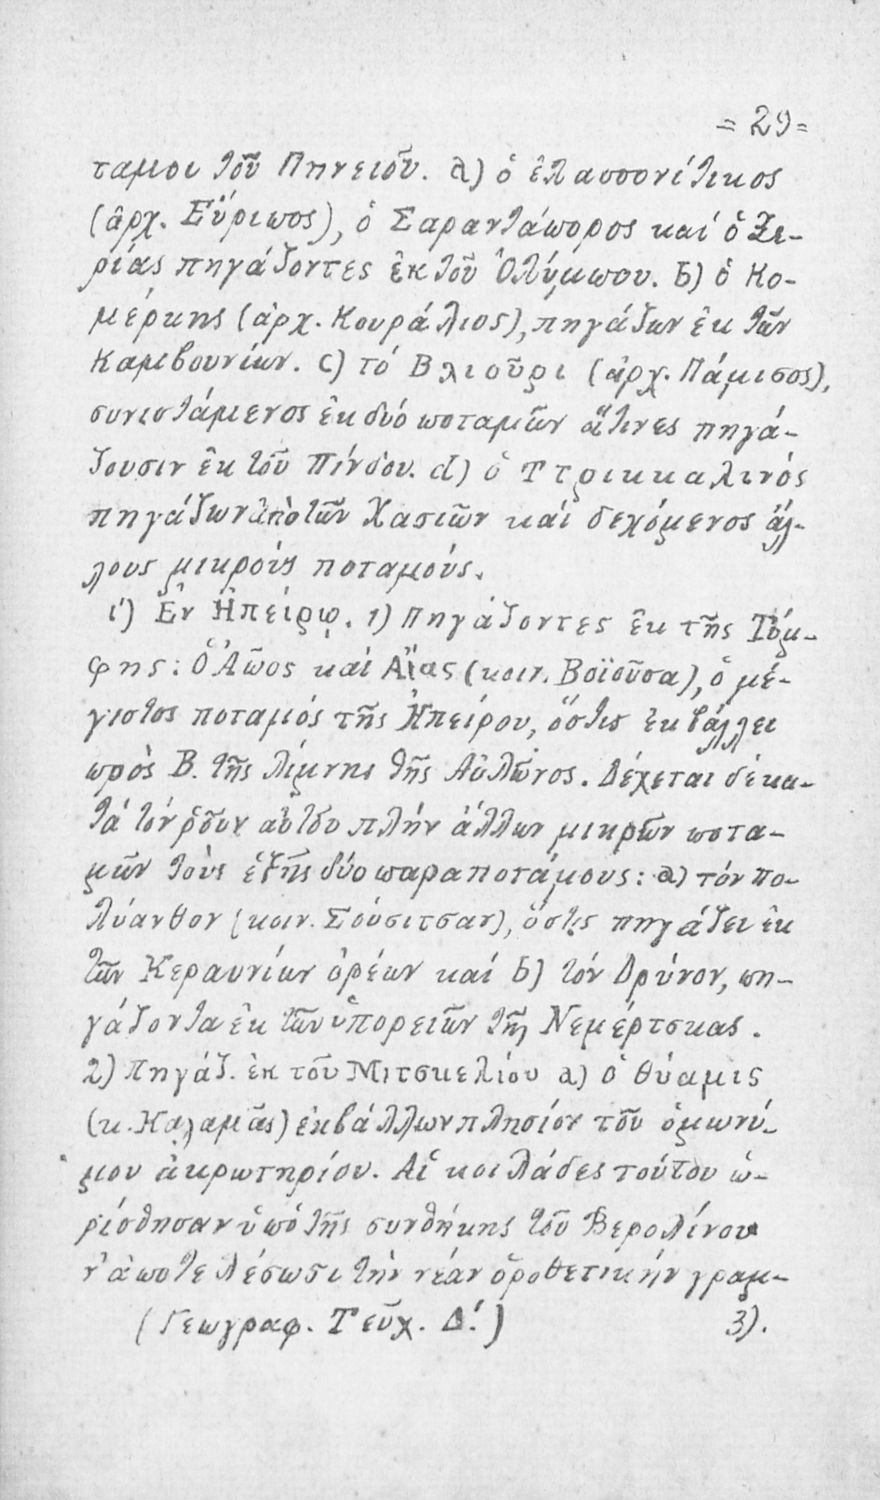 = 29 =
ταμοι τοῦ Πηνειοῦ. a) ὁ ἐλασσονίτικος
(ἀρχ. Εὔριπος), ὁ Σαραντάπορος καί ὁ Ξε-
ρίας πηγάζοντες ἐκ τοῦ Ὀλύμπου. b) ὁ Κο-
μέρκης (ἀρχ. Κουράλιος), πηγάζων ἐκ τῶν
Καμβουνίων. c) τό Βλιοῦρι (ἀρχ. Πάμισος),
συνιστάμενος ἐκ δυό ποταμῶν ἅτινες πηγά-
ζουσιν ἐκ τοῦ Πίνδου. d) ὁ Ττρικκαλινός
πηγάζων ἀπὸ τῶν Χασιῶν καί δεχόμενος ἄλ-
λους μικρούς ποταμούς.
ι') Ἐν Ἠπείρῳ. 1) Πηγάζοντες ἐκ τῆς Τύμ-
φης: Ὁ Ἀῶος καί Αἴας (κοιν. Βοϊοῦσα), ὁ μέ-
γιστος ποταμός τῆς Ἠπείρου, ὅστις ἐκβάλλει
πρὸς Β. τῆς λίμνης τῆς Αὐλῶνος. Δέχεται δέ κα-
τά τόν ῥοῦν αὐτοῦ πλήν ἄλλων μικρῶν ποτα-
μῶν τούς ἑξῆς δύο παραποτάμους: a) τόν πο-
λύανθον (κοιν. Σούσιτσαν), ὅστις πηγάζει ἐκ
τῶν Κεραυνίων ὀρέων καί b) τόν Δρύνον, πη-
γάζοντα ἐκ τῶν ὑπορειῶν τῆς Νεμέρτσκας.
2) Πηγάζ. ἐκ τοῦ Μιτσκελίου a) ὁ θύαμις
(κ. Καλαμᾶς) ἐκβάλλων πλησίον τοῦ ὁμωνύ-
μου ἀκρωτηρίου. Αἱ κοιλάδες τούτου ὡ-
ρίσθησαν ὑπό τῆς συνθήκης τοῦ Βερολίνου
ν' ἀποτελέσωσι τὴν νέαν ὁροθετικήν γραμ-
(Γεωγραφ. Τεῦχ. Δ'.) 3).